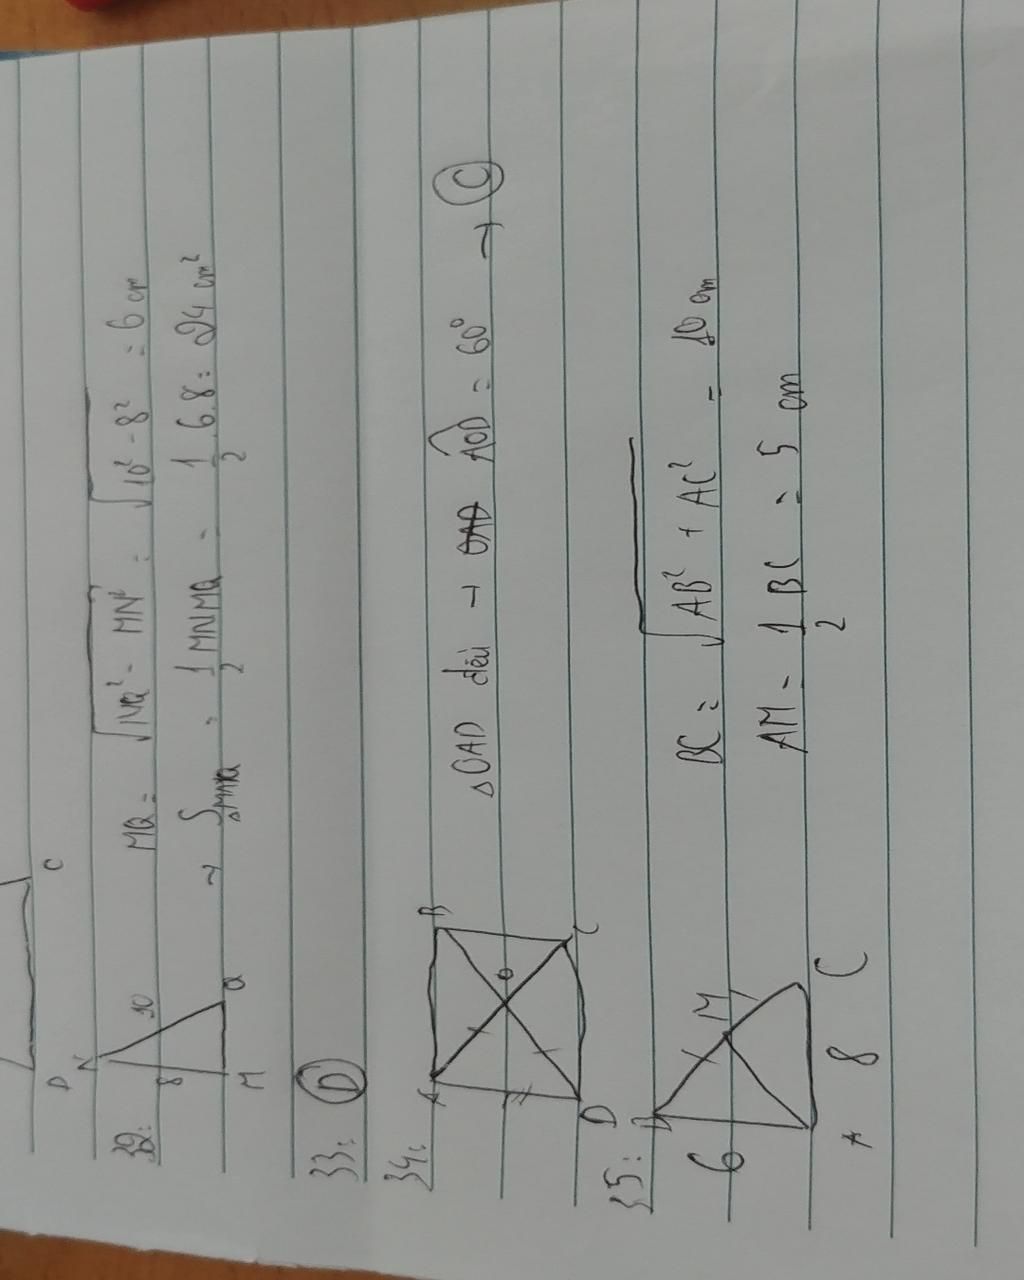 D C
32:
N
10
8
M Q
MQ = √NQ² - MN² = √10² - 8² = 6 cm
→ S△MNQ = 1/2 MNMQ = 1/2 6.8 = 24 cm²
33: D
34:
A B
O
D C
△OAD đều → AOD = 60° → C
35:
B
6
M
A 8 C
BC = √AB² + AC² = 10 cm
AM = 1/2 BC = 5 cm